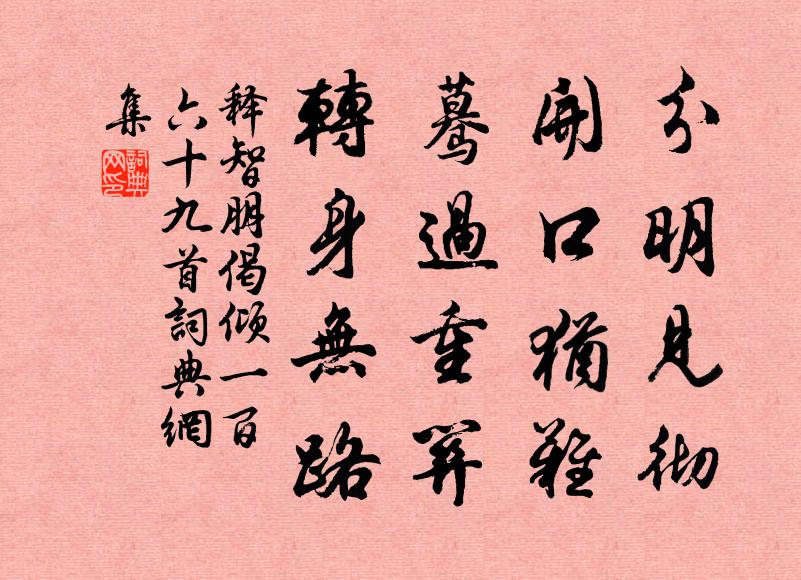 分明見彻
開口猶難
驀過重關
轉身無路
释智朋偈傾一百
六十九首詞典網
集
詞典
网印